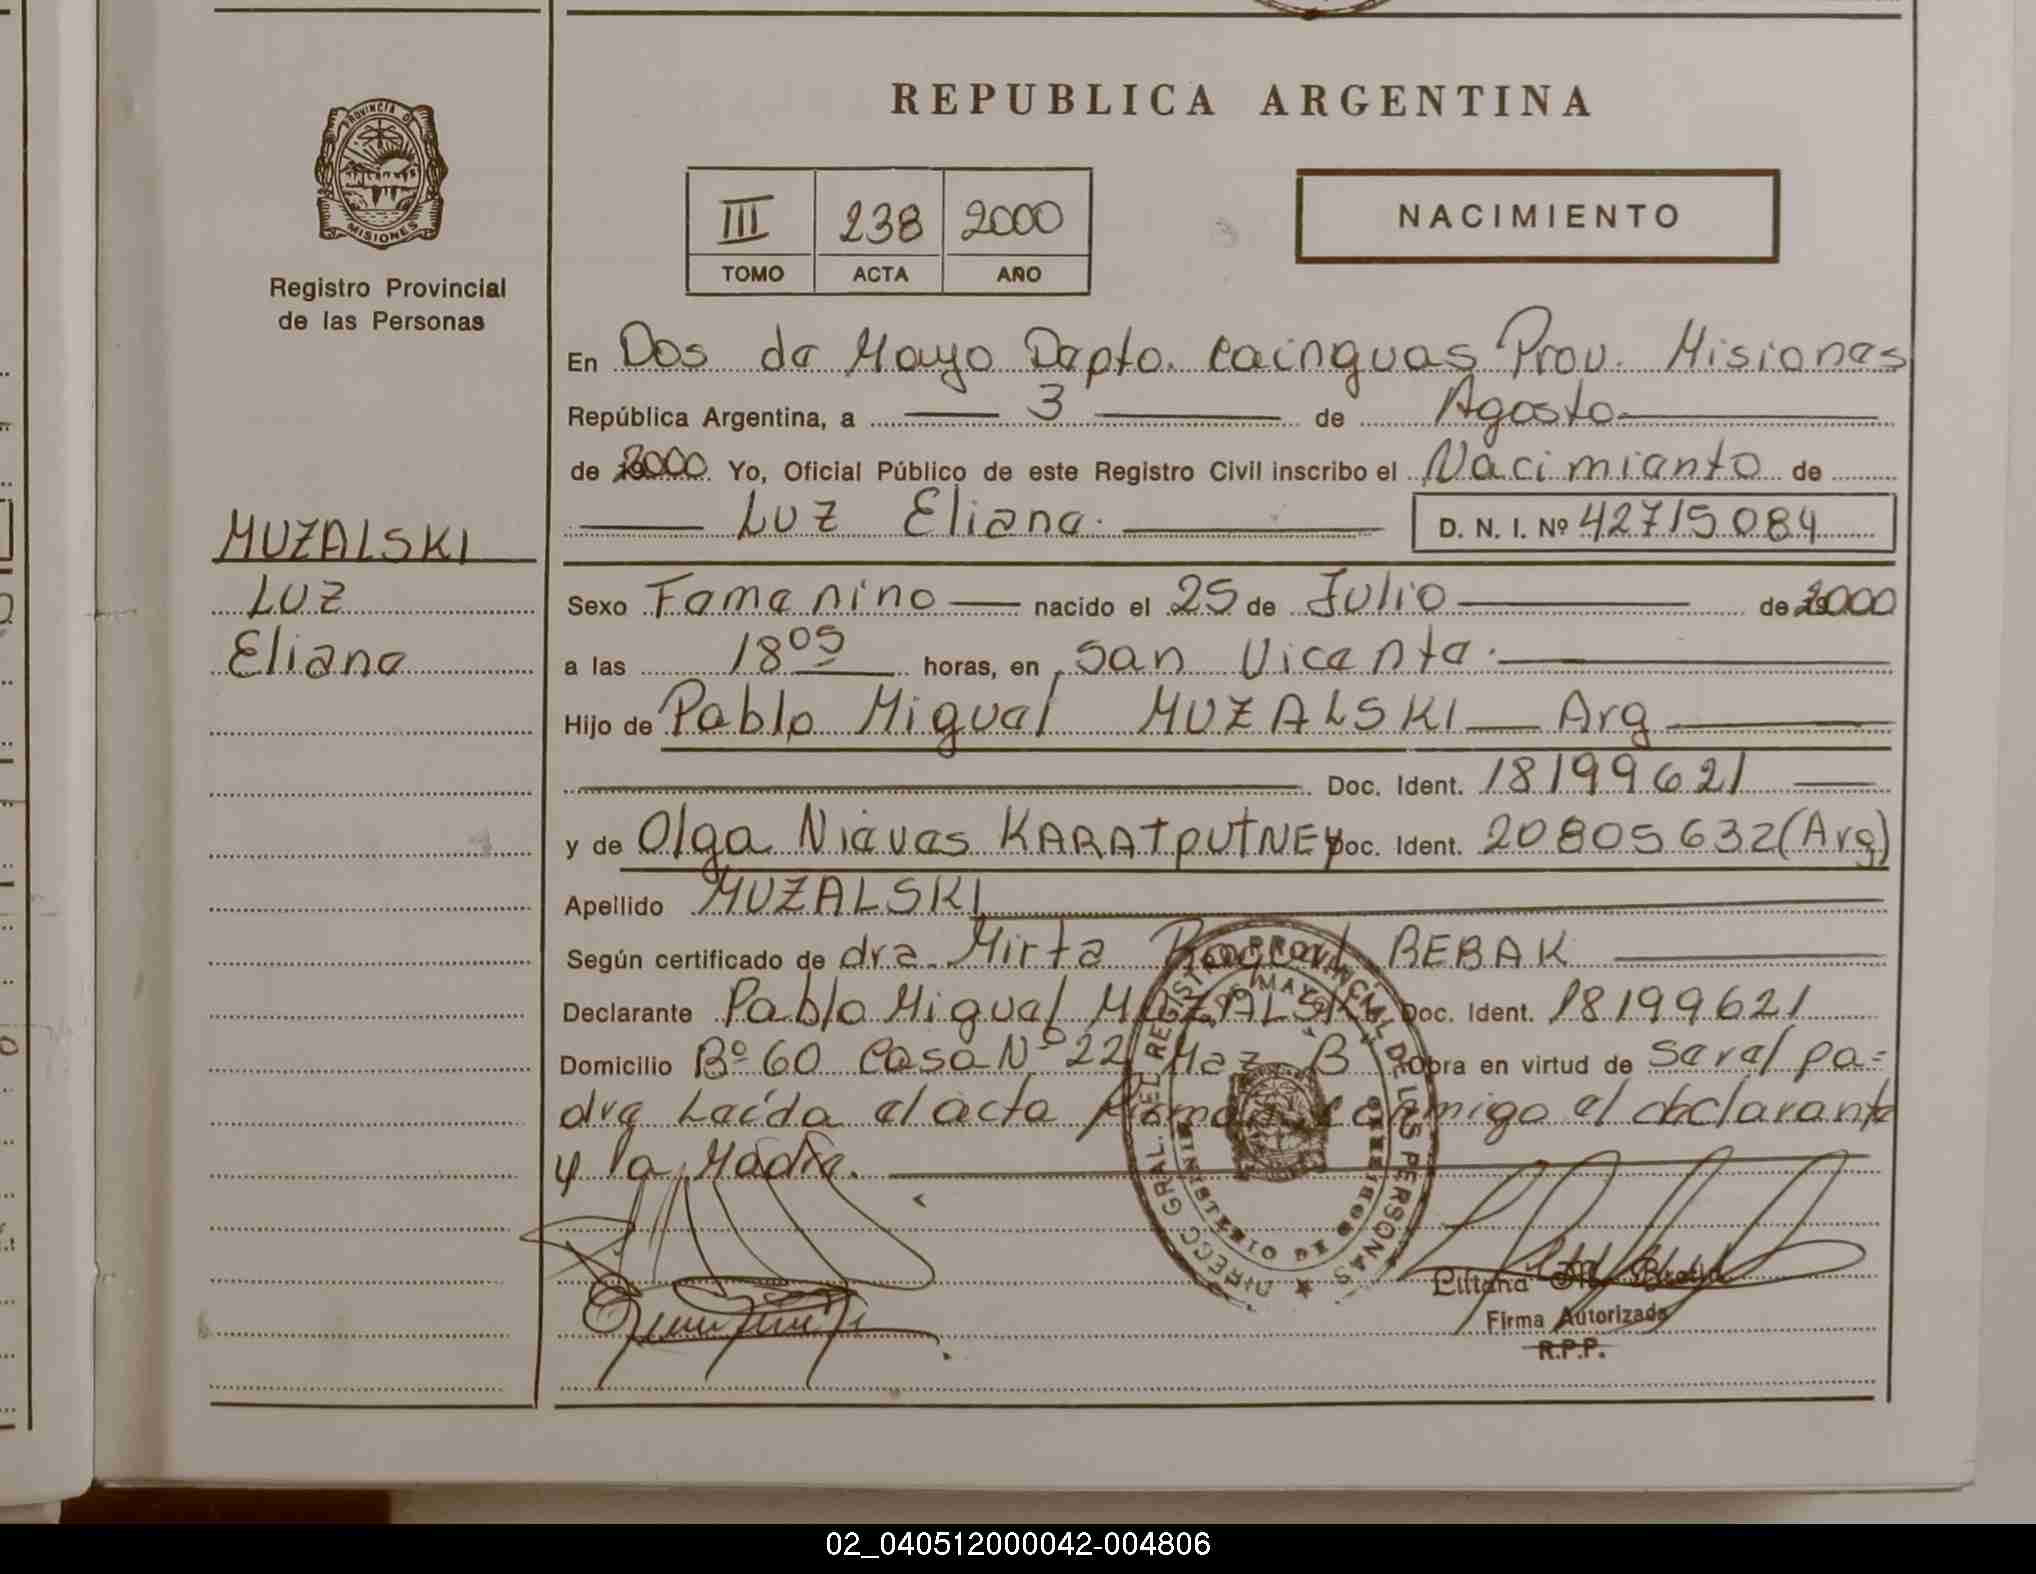 REPUBLICA ARGENTINA
PROVINCIA DE
MISIONES
Registro Provincial
de las Personas
III 238 2000
TOMO ACTA AÑO
NACIMIENTO
MUZALSKI
Luz
Eliana
En Dos de Mayo Depto. Cainguas Prov. Misiones
República Argentina, a 3 de Agosto
de 2000 Yo, Oficial Público de este Registro Civil inscribo el Nacimiento de
Luz Eliana. D. N. I. Nº 42715084
Sexo Femenino nacido el 25 de Julio de 2000
a las 18 05 horas, en San Vicente.
Hijo de Pablo Miguel MUZALSKI Arg
Doc. Ident. 18199621
y de Olga Nieves KARATPUTNEY Doc. Ident. 20805632 (Arg)
Apellido MUZALSKI
Según certificado de dra. Mirta Raquel BEBAK
Declarante Pablo Miguel MUZALSKI Doc. Ident. 18199621
Domicilio Bº 60 Casa Nº 22 Maz B Obra en virtud de ser el pa=
dre Leída el acta firma conmigo el declarante
y la Madre.
DIRECC GRAL. DEL REGISTRO PROVINCIAL DE LAS PERSONAS
DE MAYO
MINISTERIO DE GOBIERNO
Liliana
Firma Autorizada
R.P.P.
02_040512000042-004806